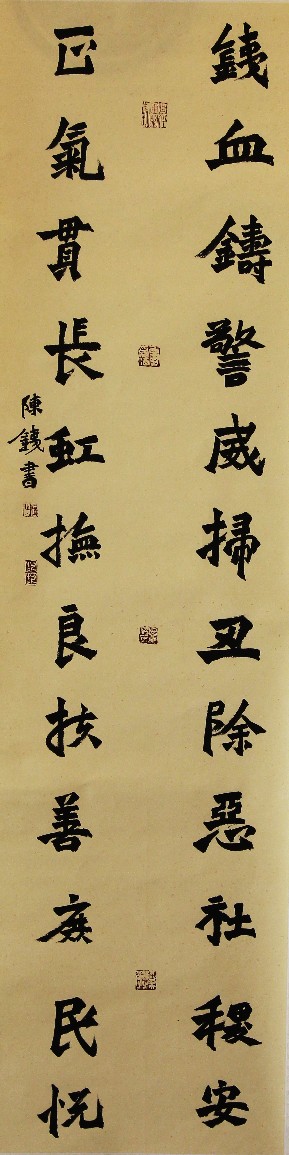 鐵血鑄警威掃丑除惡社稷安
正氣貫長虹撫良扶善庶民悦
陳鐵書